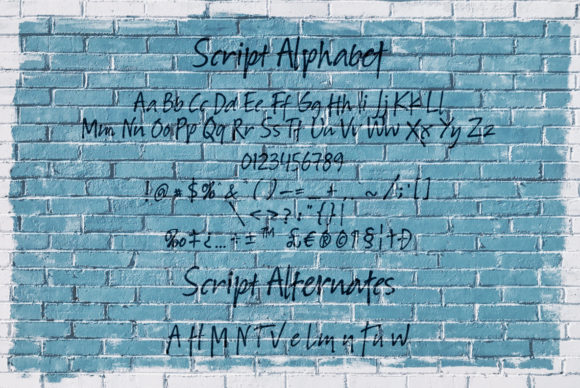 Script Alphabet
Aa Bb Cc Dd Ee Ff Gg Hh Ii Jj Kk Ll
Mm Nn Oo Pp Qq Rr Ss Tt Uu Vv Ww Xx Yy Zz
0123456789
! @ # $ % ^ & * ( ) – = _ + . , ~ / ; ' [ ]
\ < > ? : " { } |
‰ ‡ ¿ … ÷ ± ™ £ € ® © † § ¦ † Ð
Script Alternates
A H M N T V e l m n t u w